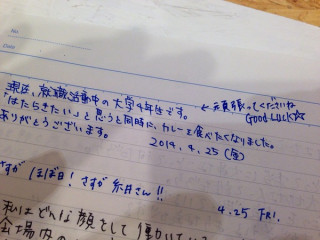 No.
Date
現在、就職活動中の大学4年生です。 ← 頑張ってくださいね
「はたらきたい」と思うと同時に、カレーを食べたくなりました。 GOOD LUCK☆
ありがとうございます。 2014. 4. 25 (金)
さすが ほぼ日! さすが 糸井さん!!
4.25 FRI.
私はどんな顔をして働いている
会場内の